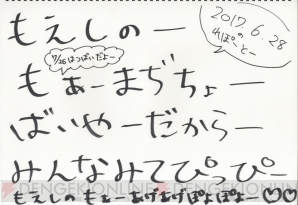 もえしのー
2017.6.28
れぽーとー
7/26はつばいだょー
もぁーまぢちょー
ばいやーだからー
みんなみてぴっぴー
もえしの もえーあげあげぽよぽよー♡♡
DENGEKIONLINE